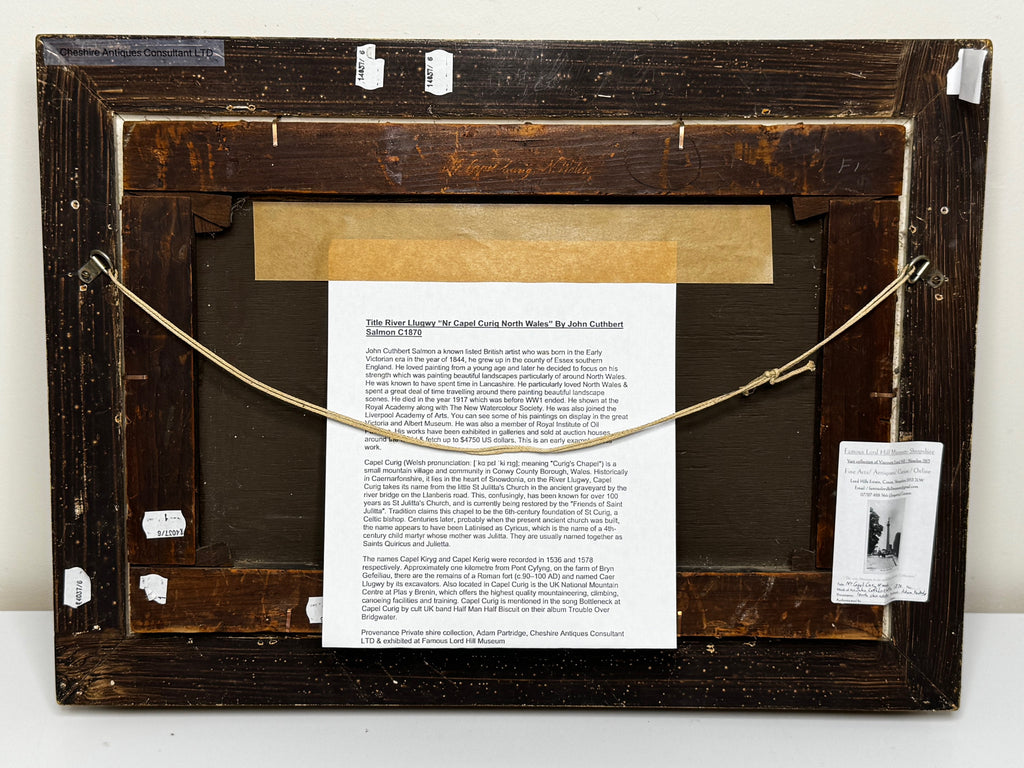 Cheshire Antiques Consultant LTD
14037/ 6
14037/ 6
Capel Curig N. Wales
F1
Title River Llugwy “Nr Capel Curig North Wales” By John Cuthbert
Salmon C1870
John Cuthbert Salmon a known listed British artist who was born in the Early
Victorian era in the year of 1844, he grew up in the county of Essex southern
England. He loved painting from a young age and later he decided to focus on his
strength which was painting beautiful landscapes particularly of around North Wales.
He was known to have spent time in Lancashire. He particularly loved North Wales &
spent a great deal of time travelling around there painting beautiful landscape
scenes. He died in the year 1917 which was before WW1 ended. He showed at the
Royal Academy along with The New Watercolour Society. He was also joined the
Liverpool Academy of Arts. You can see some of his paintings on display in the great
Victoria and Albert Museum. He was also a member of Royal Institute of Oil
His works have been exhibited in galleries and sold at auction houses
around & fetch up to $4750 US dollars. This is an early
work.
Capel Curig (Welsh pronunciation: [ˈkapɛl ˈkɪrɪɡ]; meaning "Curig's Chapel") is a
small mountain village and community in Conwy County Borough, Wales. Historically
in Caernarfonshire, it lies in the heart of Snowdonia, on the River Llugwy, Capel
Curig takes its name from the little St Julitta's Church in the ancient graveyard by the
river bridge on the Llanberis road. This, confusingly, has been known for over 100
years as St Julitta's Church, and is currently being restored by the "Friends of Saint
Julitta". Tradition claims this chapel to be the 6th-century foundation of St Curig, a
Celtic bishop. Centuries later, probably when the present ancient church was built,
the name appears to have been Latinised as Cyricus, which is the name of a 4th-
century child martyr whose mother was Julitta. They are usually named together as
Saints Quiricus and Julietta.
The names Capel Kiryg and Capel Kerig were recorded in 1536 and 1578
respectively. Approximately one kilometre from Pont Cyfyng, on the farm of Bryn
Gefeiliau, there are the remains of a Roman fort (c.90–100 AD) and named Caer
Llugwy by its excavators. Also located in Capel Curig is the UK National Mountain
Centre at Plas y Brenin, which offers the highest quality mountaineering, climbing,
canoeing facilities and training. Capel Curig is mentioned in the song Bottleneck at
Capel Curig by cult UK band Half Man Half Biscuit on their album Trouble Over
Bridgwater.
Provenance Private shire collection, Adam Partridge, Cheshire Antiques Consultant
LTD & exhibited at Famous Lord Hill Museum
14037/6
14037/6
Famous Lord Hill Museum Shropshire
Fine Arts/ Antiques/ Coins / Online